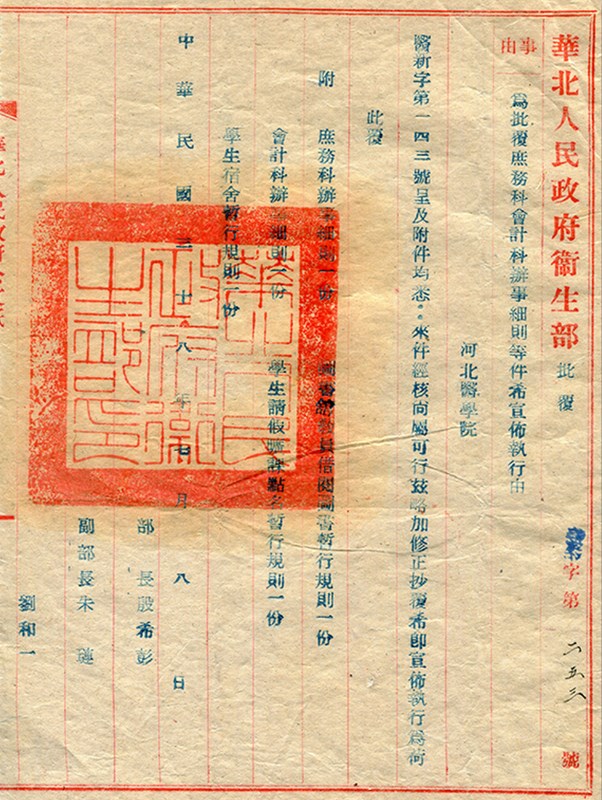 華北人民政府衞生部 批覆
字第二五三號
事由
為批覆庶務科會計科辦事細則等件希宣佈執行由
河北醫學院
醫新字第一四三號呈及附件均悉。來件經核尚屬可行茲略加修正抄覆希即宣佈執行為荷
此覆
附 庶務科辦事細則一份 圖書館教員借閱圖書暫行規則一份
會計科辦事細則一份 學生請假曠課點名暫行規則一份
學生宿舍暫行規則一份
中華民國三十八年七月八日
部長殷希彭
副部長朱璉
劉和一